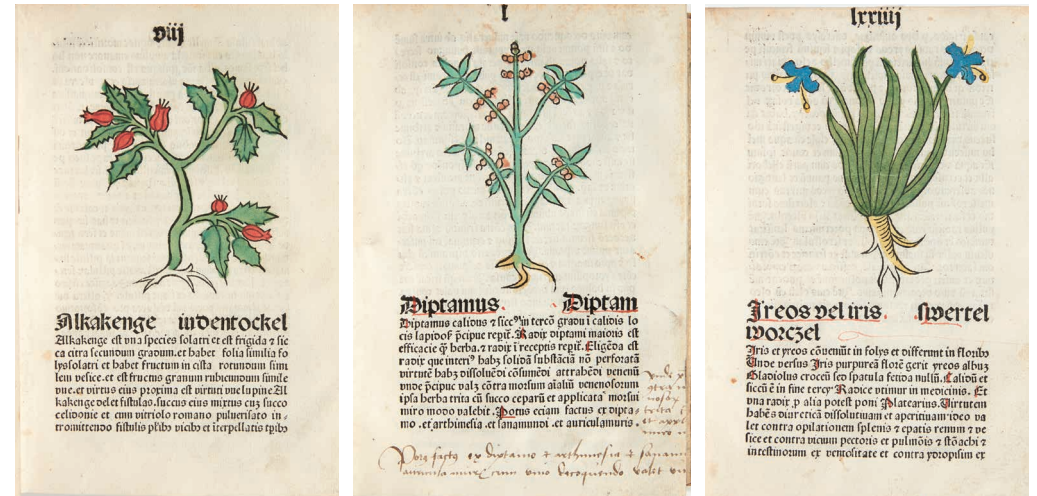 viij
Alkakenge iudentockel
Alkakenge est vna species solatri et est frigida ⁊ sic
ca circa secundum gradum. et habet folia similia fo
lys solatri et habet fructum in cista rotundum simi
lem vesice. et est fructus granum rubicundum simile
vue. et virtus eius proxima est virtuti vue lupine Al
kakenge delet fistulas. succus eius mixtus cuz succo
celidonie et cum vitriolo romano puluerisato in-
tromittendo fistulis
l
Diptamus. Diptam
Diptamus calidus ⁊ siccꝰ in terco gradu i calidis lo
cis lapidosꝭ pcipue repit̄. Radix diptami maioris est
efficacie ꝙ herba. ⁊ radix i receptis repit̄. Eligēda est
radix que interiꝰ habꝫ solidā substāciā nō perforatā
virtutē habꝫ dissoluēdi cōsumēdi attrahēdi venenū
vnde p̄cipue valꝫ cōtra morsum aīaliū venenosorum
ipsa herba trita cū succo ceparū et applicata morsui
miro modo valebit. Potus eciam factus ex dipta-
mo .et arthimesia .et sanamundi .et auriculamuris.
Potus factus ex diptamo et arthimesia et sanam
lxxiiij
Ireos vel iris. swertel
worczel
Iris et yreos cōueniūt in folys et differunt in floribꝰ
Vnde versus Iris purpureā florē gerit yreos albuꝫ
Gladiolus croceū sed spatula fetida nullū. Calidū et
siccū ē in fine tercij Radice vtimur in medicinis. Et
vna radix ꝓ alia potest poni Platearius. Virtutem
habēs diureticā dissolutiuam et aperitiuam ideo va
let contra opilationem splenis ⁊ epatis renum ⁊ ve
sice et contra vicium pectoris et pulmōis ⁊ stōachi ⁊
intestinorum ex ventositate et contra ydropisim ex